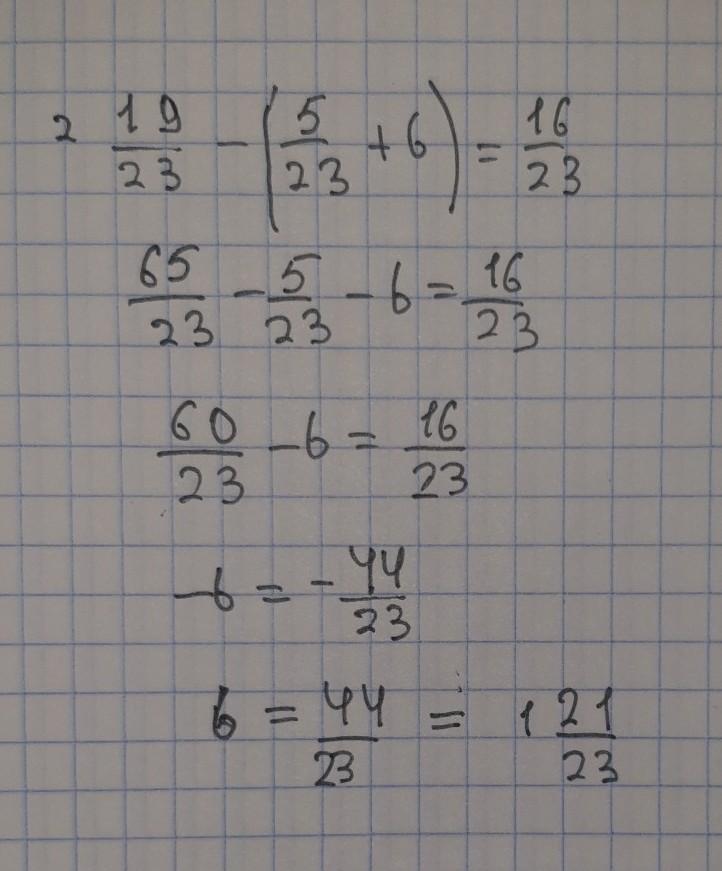 2 19/23 - (5/23 + b) = 16/23
65/23 - 5/23 - b = 16/23
60/23 - b = 16/23
-b = -44/23
b = 44/23 = 1 21/23